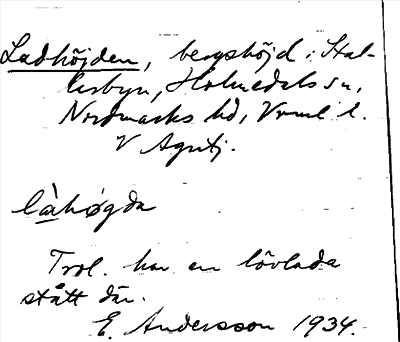 Ladhöjden, bergshöjd i Stal-
lerbyn, Holmedals sn,
Nordmarks hd, Vrml l.
V Agntj.
làhøgda
Trol. har en lövlada
stått där.
E. Andersson 1934.